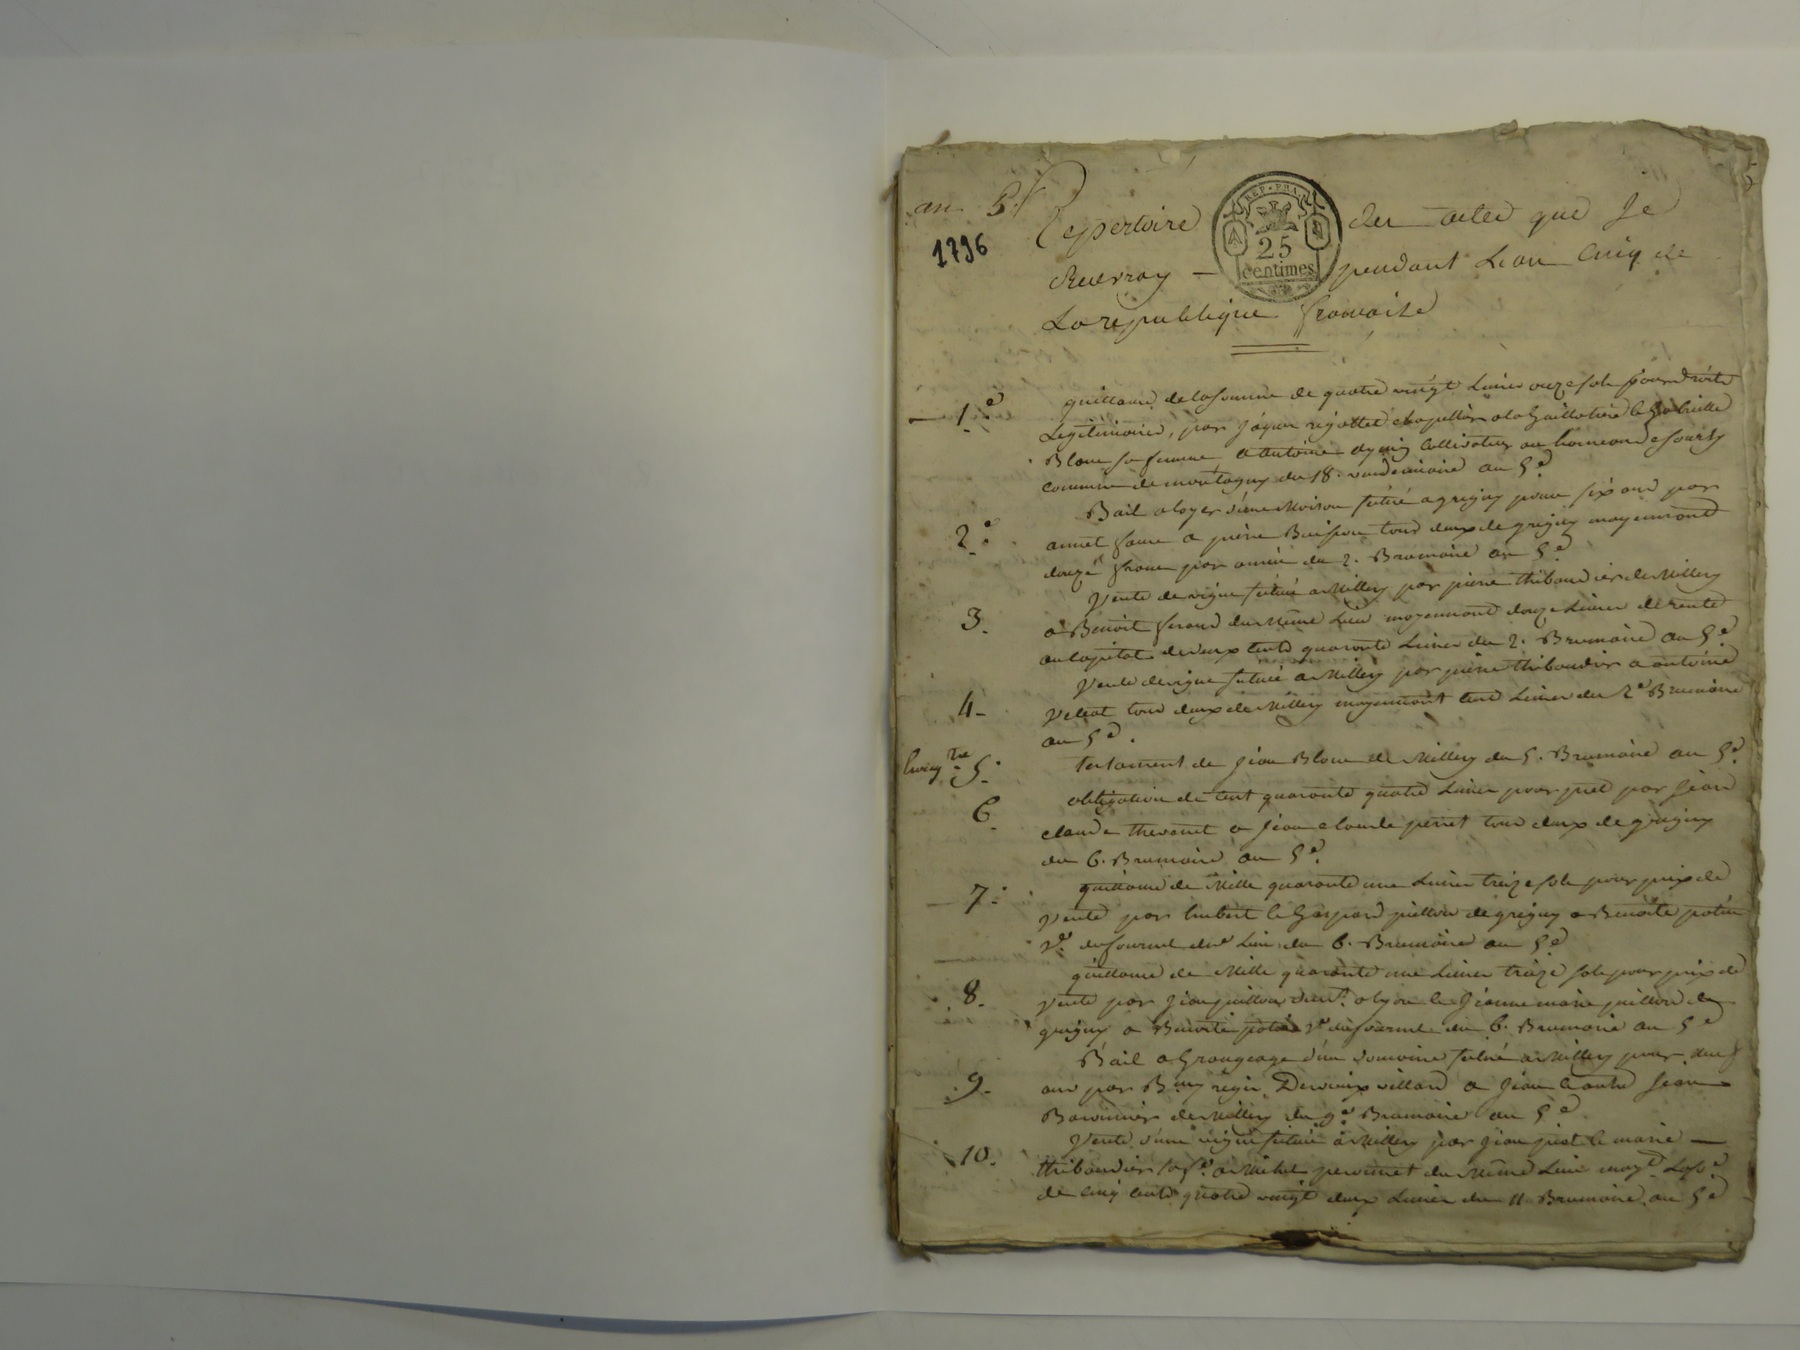 an 5.
1796
Repertoire des actes que Je
Recevray — pendant Lan Cinq de
La republique francaise
REP. FRA.
25
centimes
1.e quittance de la somme de quatre vingt Livres onze sols pour droits
Legitimaires, par Jaques rigottet chapellier a la Guillotiere &
Blanc sa femme a antoine cultivateur au
commune de montagny du 18. vandemiaire an 5e
2.e Bail a loyer d'une Maison située a grigny pour six ans par
annet faure a pierre Buisson tous deux de grigny moyennant
douze francs par année du 2. Brumaire an 5e
3. Vente de vigne située a Millery par pierre thibaudier de Millery
a Benoit ferrand du Même Lieu moyennant douze Livres de rente
au capital de deux cents quarante Livres du 2. Brumaire an 5e
4- Vente de vigne située a Millery par pierre thibaudier a antoine
Velliat tous deux de Millery moyennant cent Livres du 2e Brumaire
an 5e.
5. testament de Jean Blanc de Millery du 5. Brumaire an 5e.
6. obligation de cent quarante quatre Livres pour pret par Jean
claude thevenet a Jean claude perret tous deux de grigny
du 6. Brumaire an 5e.
7. quittance de Mille quarante une Livres treize sols pour prix de
Vente par imbert & Gaspard puillon de grigny a Benoite
Ve. dufournel dud. Lieu du 6. Brumaire an 5e
8. quittance de Mille quarante une Livres treize sols pour prix de
Vente par Jean puillon a Lyon & Jeanne marie puillon de
grigny a Benoite Ve dufournel du 6. Brumaire an 5e
9. Bail a Grangeage d'un domaine situé a Millery pour neuf
ans par villard a Jean & autre Jean
de Millery du 9e Brumaire an 5e
10. Vente d'une vigne située a Millery par Jean & marie —
thibaudier sa fe. a Michel du Même Lieu moyt. La
de cinq cents quatre vingt deux Livres du 11 Brumaire an 5e